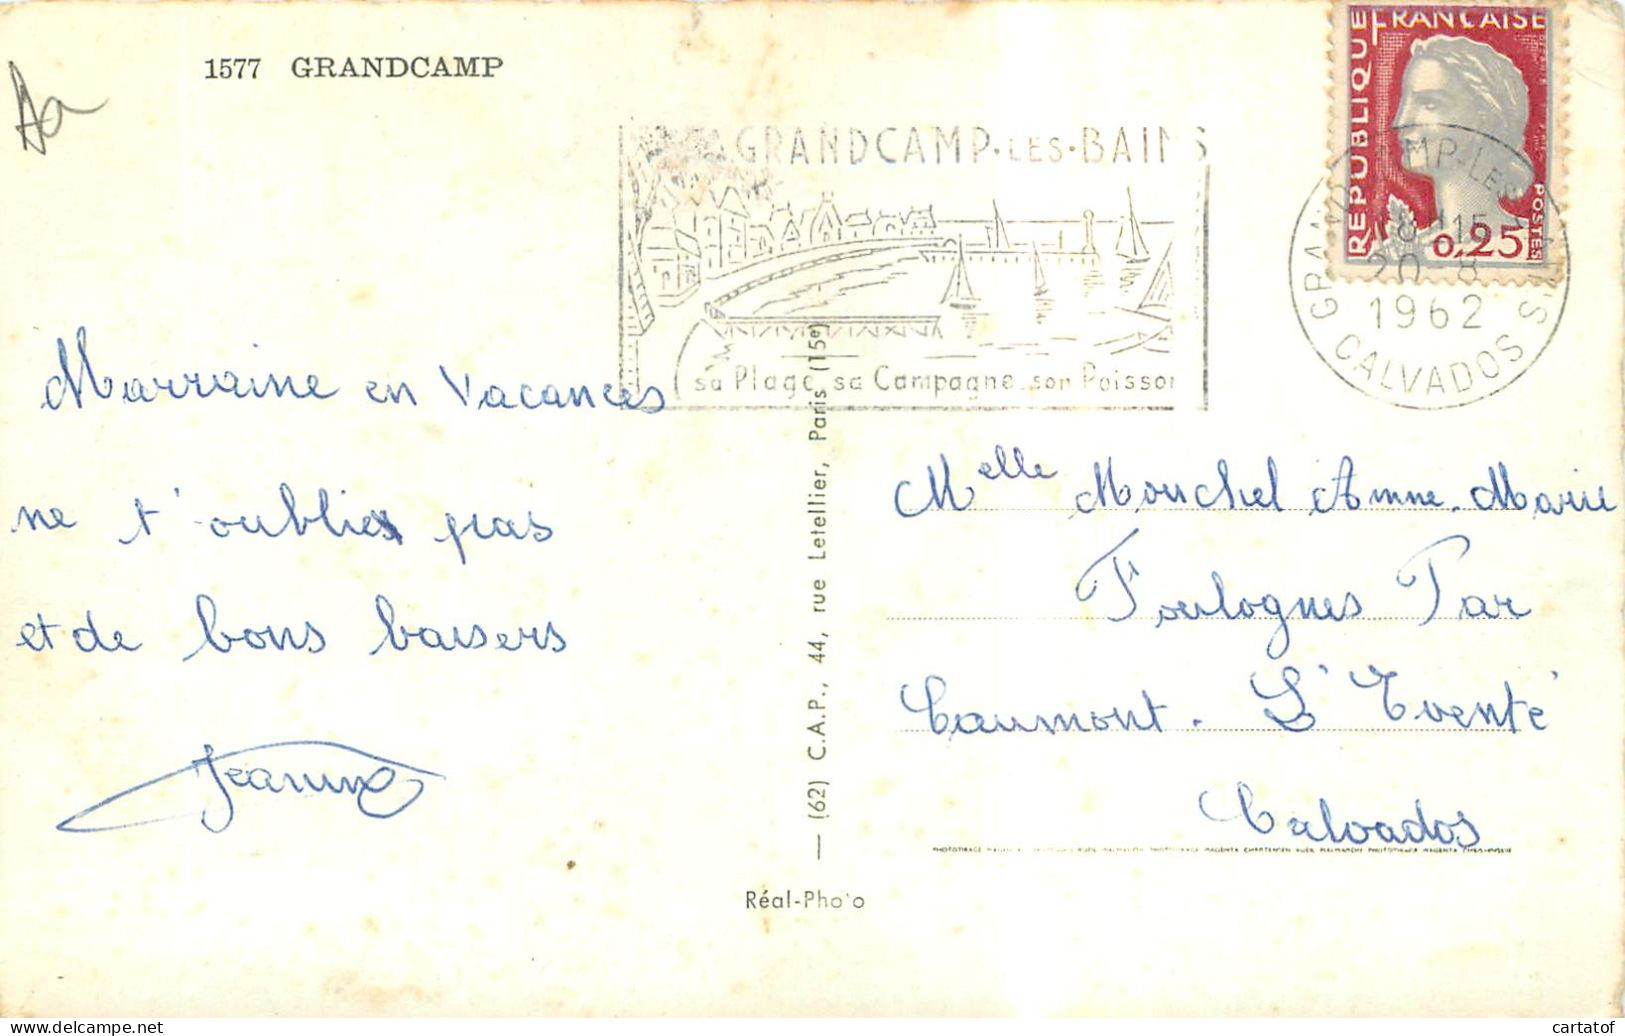 1577 GRANDCAMP
Aa
GRANDCAMP·LES·BAINS
sa Plage sa Campagne son Poisson
REPUBLIQUE FRANCAISE
POSTES
0,25
18H15
20-8
1962
CALVADOS
Marraine en Vacances
ne t'oublies pas
et de bons baisers
Jeannine
Melle Mouchel Anne.Marie
Foulognes Par
Caumont. L'Eventé
Calvados
(62) C.A.P., 44, rue Letellier, Paris (15e)
Réal-Photo
cartatof